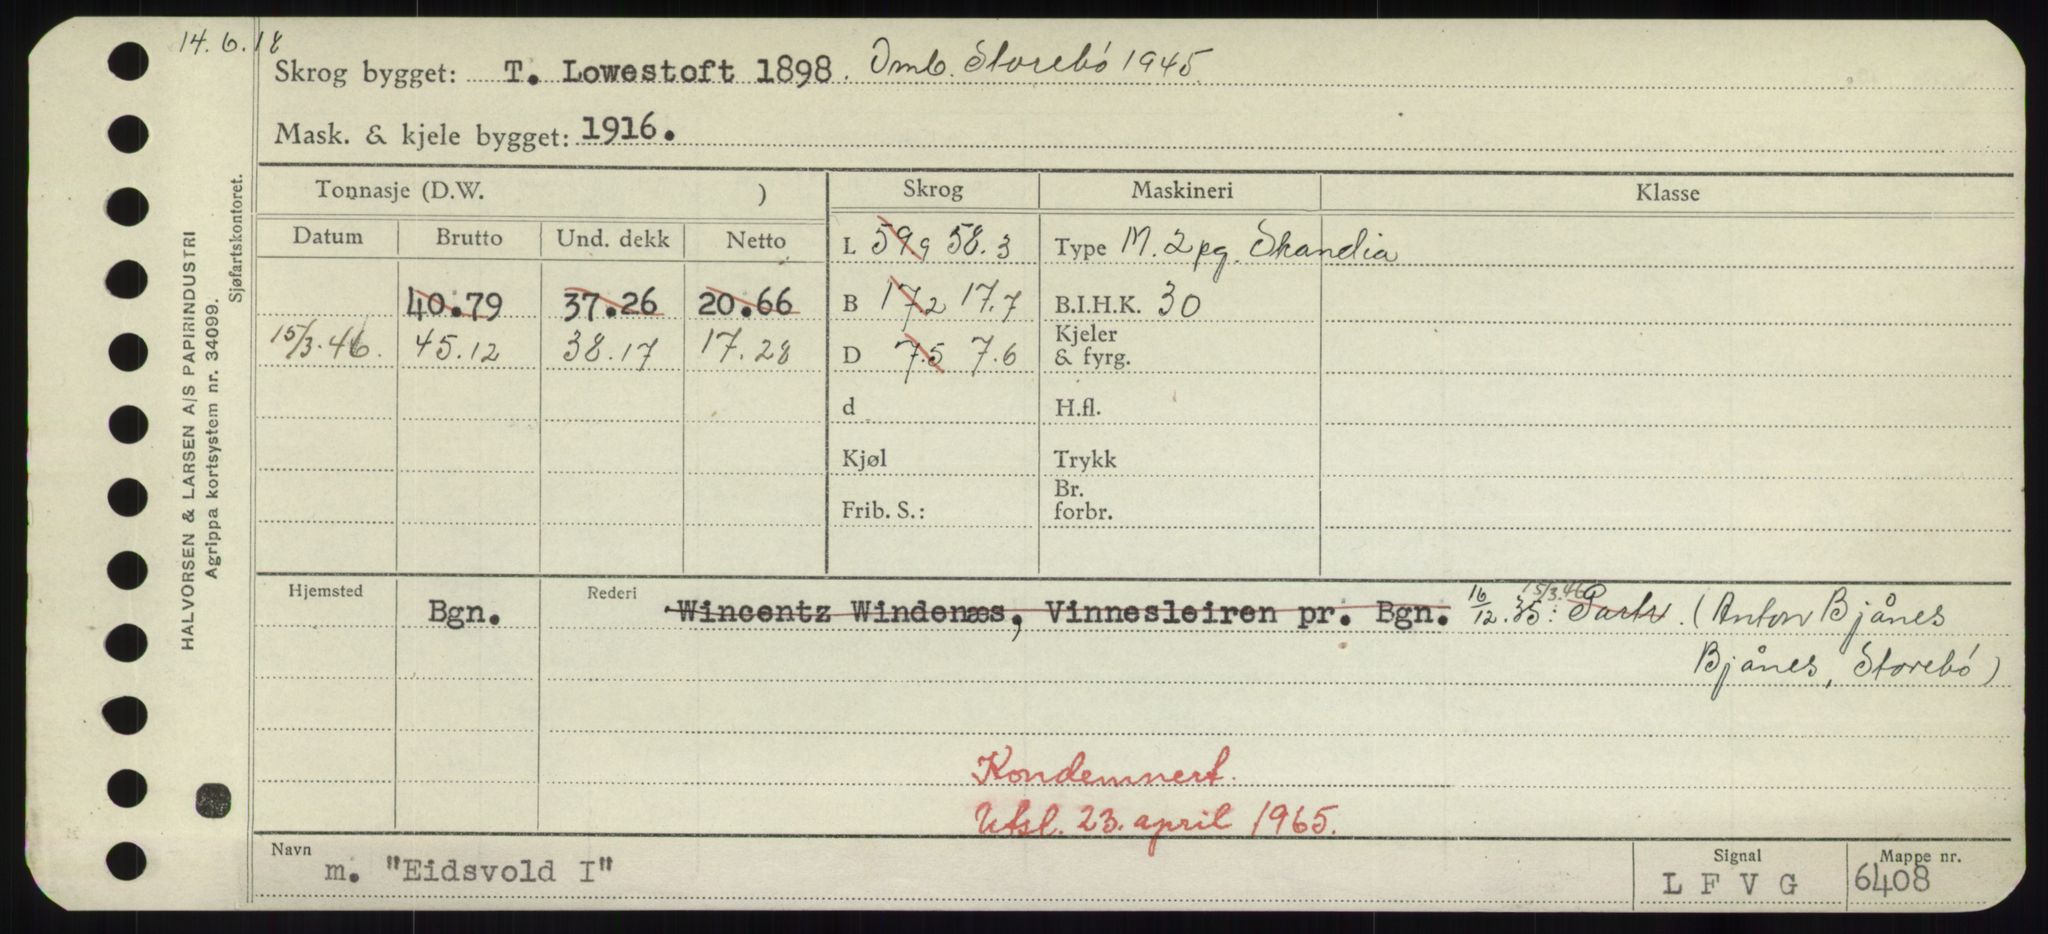 14.6.18
Skrog bygget: T. Lowestoft 1898. Omb. Storebó 1945
Mask. & kjele bygget: 1916.
Tonnasje (D.W. ) Skrog Maskineri Klasse
Datum Brutto Und. dekk Netto L 59.9 58.3 Type M. 2 pg. Skandia
40.79 37.26 20.66 B 17.2 17.7 B.I.H.K. 30
15/3.46. 45.12 38.17 17.28 D 7.5 7.6 Kjeler & fyrg.
d H.fl.
Kjøl Trykk
Frib. S.: Br. forbr.
Hjemsted Bgn. Rederi Wincentz Windenæs, Vinnesleiren pr. Bgn. 16/12.35: 15/3.46 Partr. (Anton Bjånes
Bjånes, Storebó)
Kondemnert.
Utsl. 23. april 1965.
Navn m. "Eidsvold I" Signal L F V G Mappe nr. 6408
HALVORSEN & LARSEN A/S PAPIRINDUSTRI
Agrippa kortsystem nr. 34099.
Sjøfartskontoret.